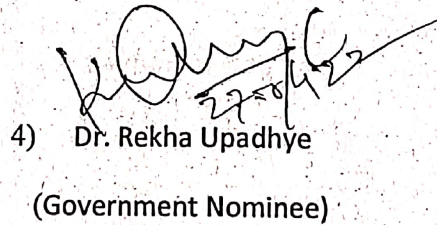 4) Dr. Rekha Upadhye
(Government Nominee)